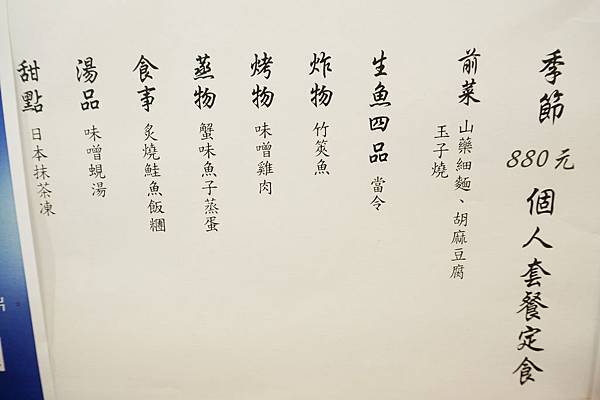 季節 880元 個人套餐定食
前菜 山藥細麵、胡麻豆腐
玉子燒
生魚四品 當令
炸物 竹筴魚
烤物 味噌雞肉
蒸物 蟹味魚子蒸蛋
食事 炙燒鮭魚飯糰
湯品 味噌蜆湯
甜點 日本抹茶凍